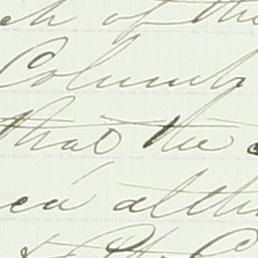 ch of the
Columb
that the
ed alth